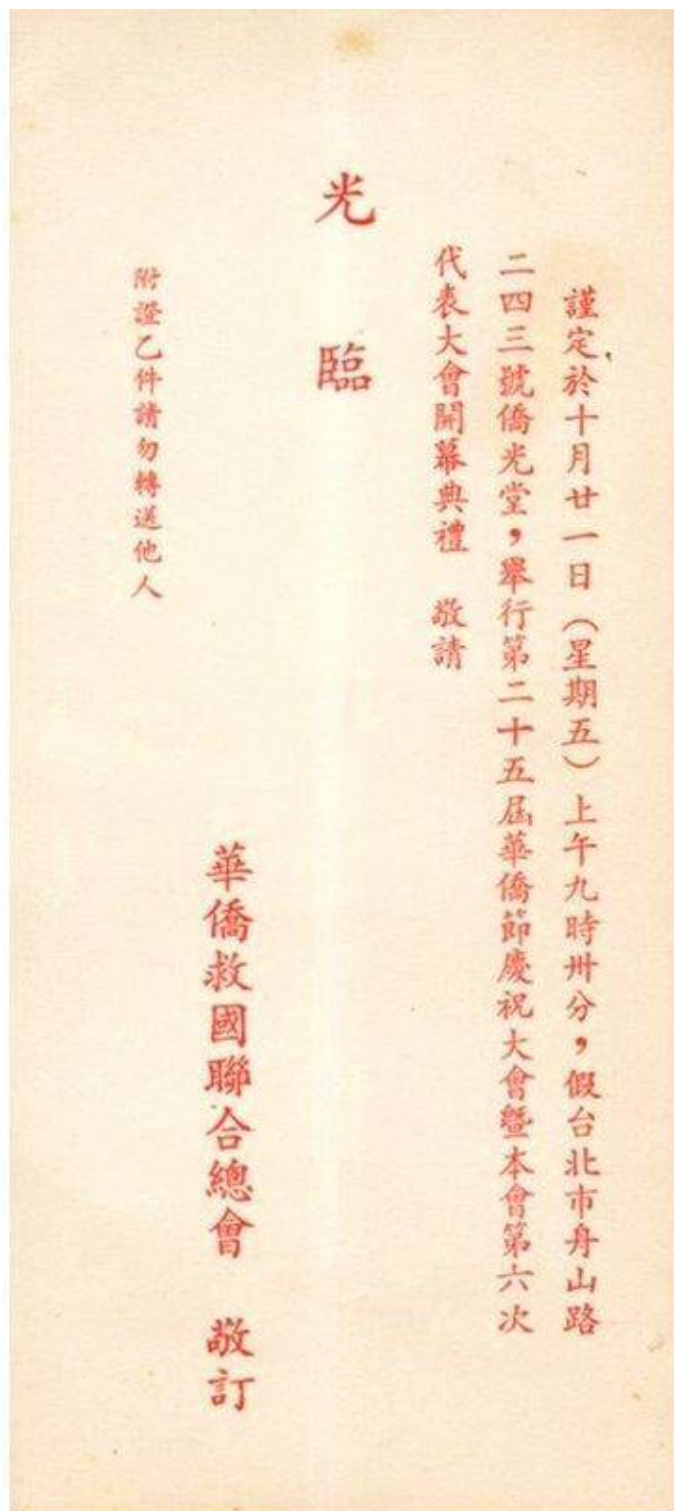 謹定於十月廿一日（星期五）上午九時卅分，假台北市舟山路
二四三號僑光堂，舉行第二十五屆華僑節慶祝大會暨本會第六次
代表大會開幕典禮　敬請
光臨
華僑救國聯合總會　敬訂
附證乙件請勿轉送他人